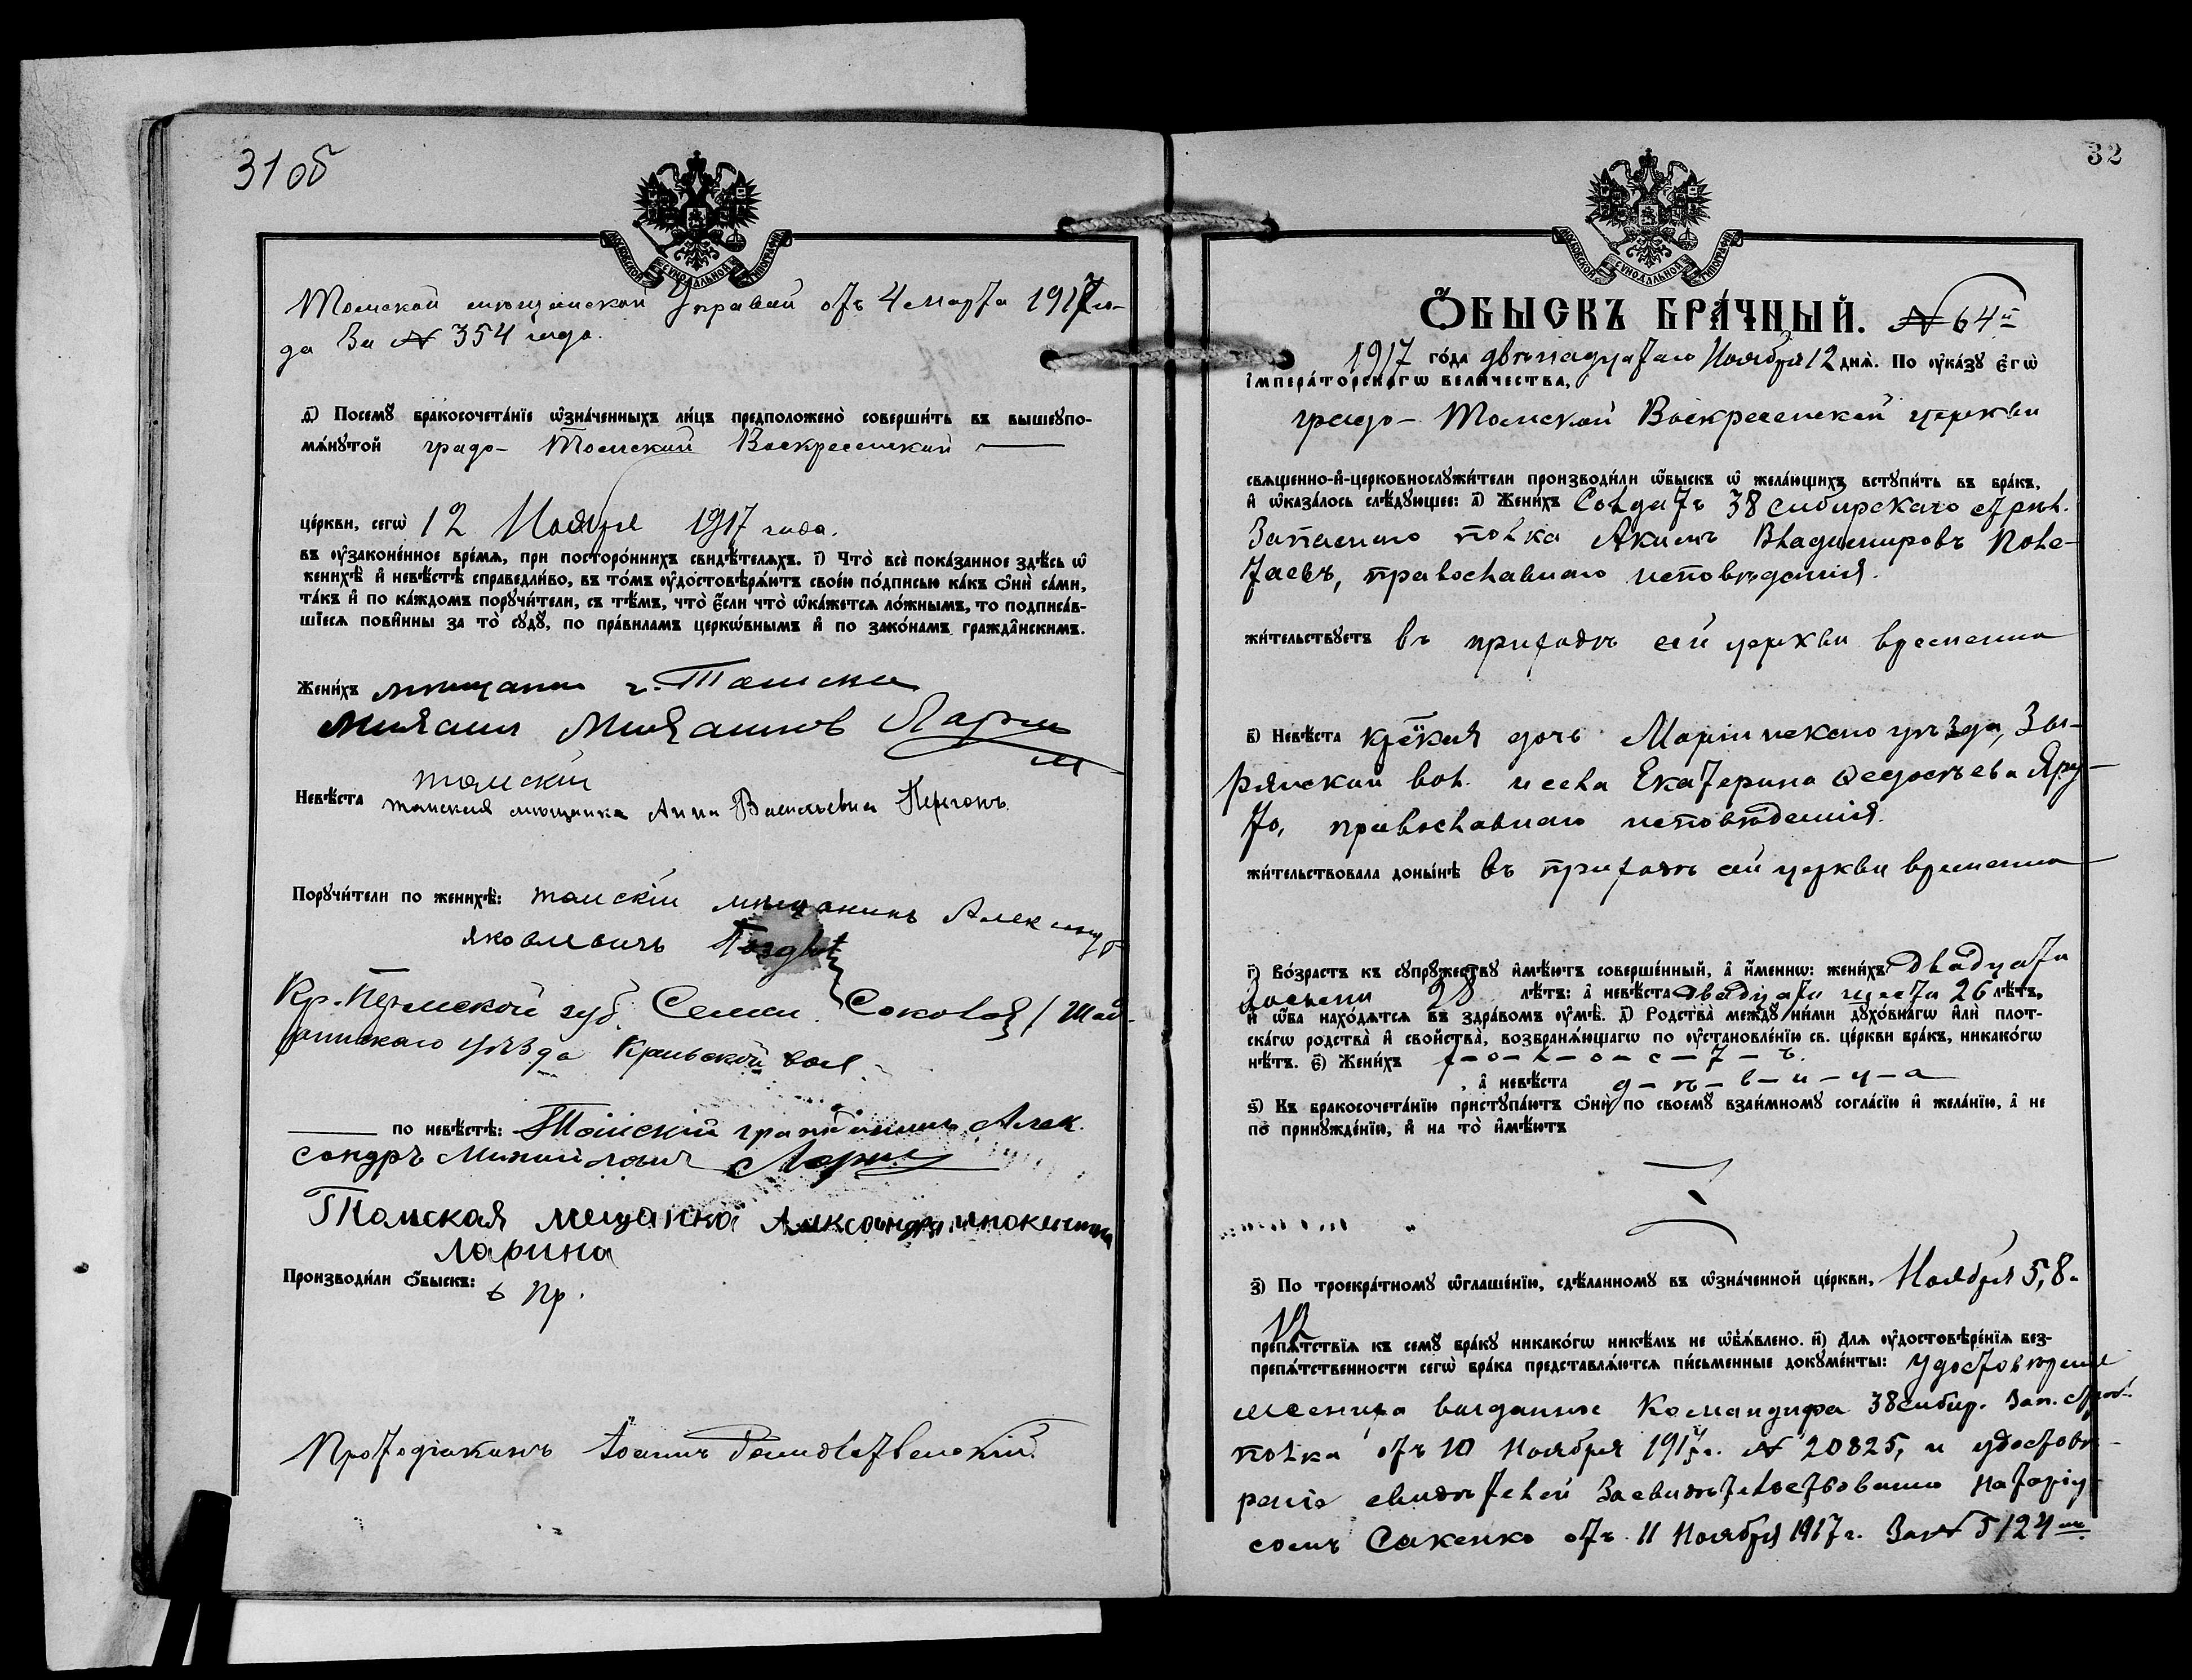 31 об
МОСКОВСКОЙ СѴНОДАЛЬНОЙ ТИПОГРАФІИ
Томской мѣщанской Управой отъ 4 марта 1917 го-
да За № 354 
д҃) Посемꙋ бракосочета́нїе ѡ҆зна́ченныхъ ли́цъ предположено̀ соверши́ть въ вышеꙋпо-
мѧ́нꙋтой градо- Томской Воскресенской
це́ркви, сегѡ̀ 12 Ноября 1917 года.
въ ᲂу҆зако́ненное вре́мѧ, при посторо́ннихъ свидѣ́телѧхъ. і҃) Что̀ всѐ пока́занное здѣ́сь ѡ҆
женихѣ̀ и҆ невѣ́стѣ справедли́во, въ то́мъ ᲂу҆достовѣрѧ́ютъ свое́ю по́дписью ка́къ ѻ҆нѝ са́ми,
та́къ и҆ по ка́ждомъ порꙋчи́тели, съ тѣ́мъ, что̀ є҆́сли что̀ ѡ҆ка́жетсѧ ло́жнымъ, то подписа́в-
шїесѧ пови́нны за то̀ сꙋдꙋ̀, по пра́виламъ церко́внымъ и҆ по зако́намъ гражда́нскимъ.
Жени́хъ мещанин г. Томска
Михаил Михайлов Ларин
Невѣ́ста томскій
томская мѣщанка Анна Васильевна
Порꙋчи́тели по женихѣ̀: томскій мѣщанинъ Александр
Яковлевичъ
Кр. Пермской губ. Семен Соковой
уѣзда вол.
по невѣ́стѣ: Томскій гражданинъ Алек
сандръ Михайлович Ларин
Томская мещанка Александра
Ларина
Производи́ли ѻ҆́быскъ:
Пр.
Протодіаконъ Іоаннъ
32
МОСКОВСКОЙ СѴНОДАЛЬНОЙ ТИПОГРАФІИ
Ѻ҆́БЫСКЪ БРА́ЧНЫЙ. № 64й
1917 го́да двѣнадцатаго Ноября 12 днѧ̀. По ᲂу҆ка́зꙋ є҆гѡ̀
і҆мпера́торскагѡ вели́чества,
градо- Томской Воскресенской церкви
свѧще́нно-и҆-церковнослꙋжи́тели производи́ли ѻ҆́быскъ ѡ҆ жела́ющихъ встꙋпи́ть въ бра́къ,
и҆ ѡ҆каза́лось слѣ́дꙋющее: а҃) Жени́хъ Солдатъ 38 сибирскаго стрѣл.
Запаснаго полка Акимъ Владимировъ Поле-
таевъ, православнаго исповѣданія.
жи́тельствꙋетъ въ приходѣ сей церкви временно
в҃) Невѣ́ста кр-ская дочь Маріинскаго уѣзда, Зы-
рянской вол. и села Екатерина Ѳедосѣева Яру-
та, православнаго исповѣданія.
жи́тельствовала доны́нѣ въ приходѣ сей церкви временно
г҃) Во́зрастъ къ сꙋпрꙋ́жествꙋ и҆мѣ́ютъ соверше́нный, а҆ и҆́меннѡ: жени́хъ двадцати
восьми 28 лѣ́тъ: а҆ невѣ́ста двадцати шести 26 лѣ́тъ,
и҆ ѻ҆́ба нахо́дѧтсѧ въ здра́вомъ ᲂу҆мѣ̀. д҃) Родства̀ междꙋ ни́ми дꙋхо́внагѡ и҆лѝ плот-
ска́гѡ родства̀ и҆ сво́йства, возбранѧ́ющагѡ по ᲂу҆становле́нїю св. це́ркви бра́къ, никако́гѡ
нѣ́тъ. є҃) Жени́хъ х-о-л-о-с-т-ъ.
, а҆ невѣ́ста д-ѣ-в-и-ц-а
ѕ҃) Къ бракосочета́нїю пристꙋпа́ютъ ѻ҆нѝ по своемꙋ̀ взаи́мномꙋ согла́сїю и҆ жела́нїю, а҆ не
по принꙋжде́нїю, и҆ на то̀ и҆мѣ́ютъ
з҃) По троекра́тномꙋ ѡ҆глаше́нїю, сдѣ́ланномꙋ въ ѡ҆зна́ченной це́ркви, Ноября 5, 8 и
12
препѧ́тствїѧ къ семꙋ̀ бра́кꙋ никако́гѡ никѣ́мъ не ѡ҆бъѧ́влено. и҃) Длѧ ᲂу҆достовѣре́нїѧ без-
препѧ́тственности сегѡ̀ бра́ка представлѧ́ютсѧ пи́сьменные докꙋме́нты: удостовѣреніе
жениха выданное Командира 38 сибир. Зап. стрѣл.
полка отъ 10 Ноября 1917 г. № 20825, и удостовѣ-
реніе свидѣтелей Засвидѣтельствовано нотаріу-
сомъ Сакенко отъ 11 Ноября 1917 г. За № 5124